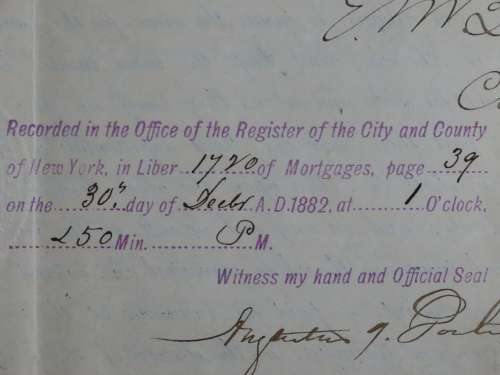 E. W.
Recorded in the Office of the Register of the City and County
of New York, in Liber 1720 of Mortgages, page 39
on the 30" day of Decbr A.D. 1882, at 1 O'clock,
&50 Min. P M.
Witness my hand and Official Seal
Augustus J.